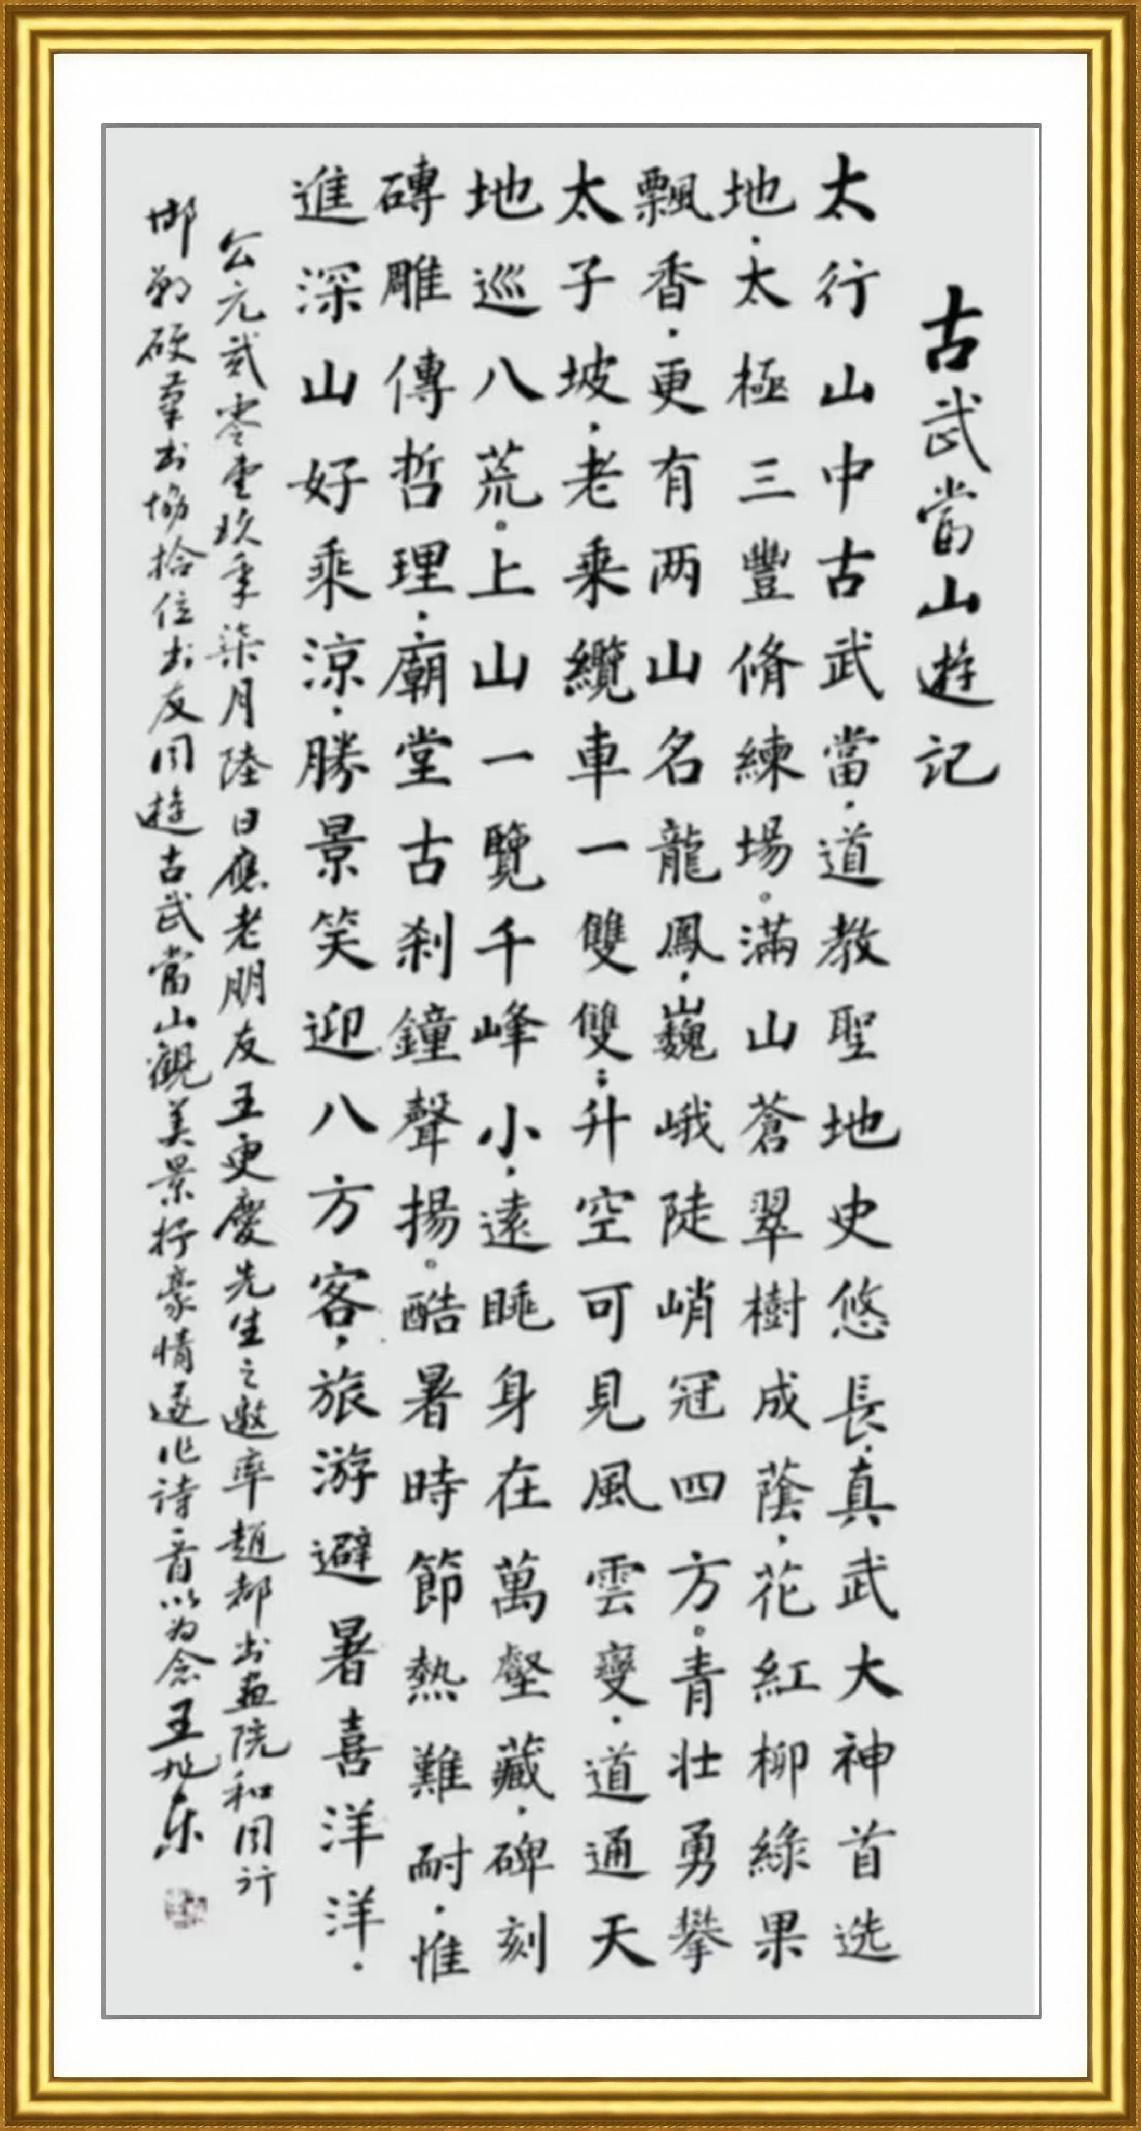 古武當山遊記
太行山中古武當，道教聖地史悠長，真武大神首选
地，太極三豐脩練場。滿山蒼翠樹成蔭，花紅柳綠果
飄香，更有两山名龍鳳，巍峨陡峭冠四方。青壮勇攀
太子坡，老乘纜車一雙雙；升空可見風雲變，道通天
地巡八荒。上山一覽千峰小，遠眺身在萬壑藏，碑刻
磚雕傳哲理，廟堂古刹鐘聲揚。酷暑時節熱難耐，惟
進深山好乘涼，勝景笑迎八方客，旅游避暑喜洋洋。
公元貳零壹玖年柒月陸日應老朋友王更慶先生之邀率趙都书画院和同行
邯鄲硬筆书協拾位书友同遊古武當山觀美景抒豪情遂作诗一首以为念王旭东